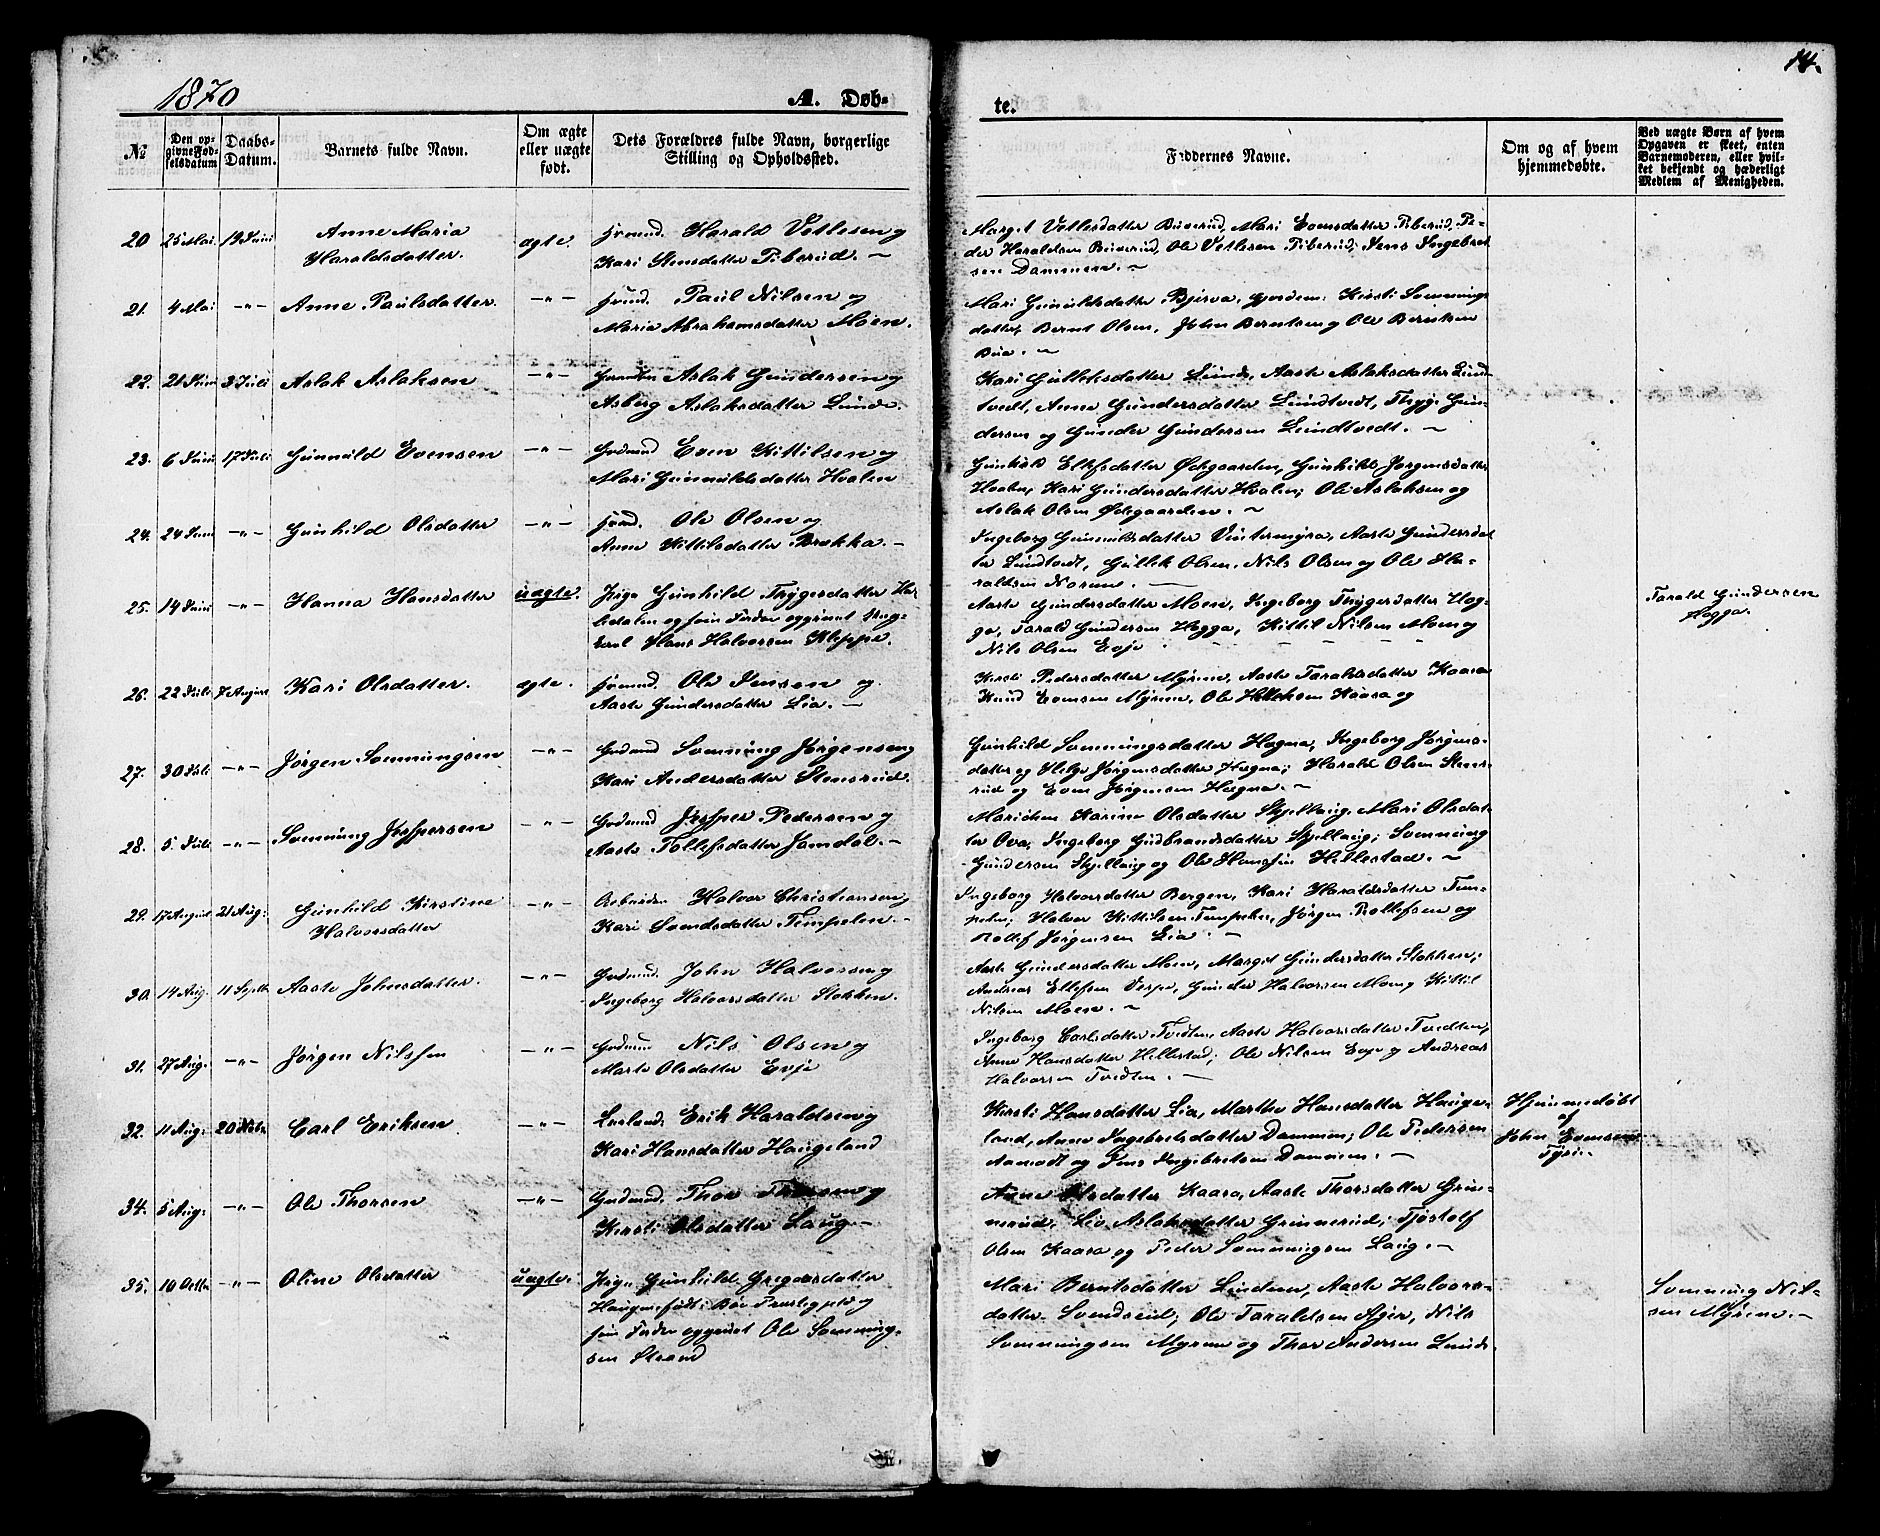 1870
A. Døb-
te.
14.
№
Den op-
givne Fød-
selsdatum
Daabs-
Datum.
Barnets fulde Navn.
Om ægte
eller uægte
født.
Dets Forældres fulde Navn, borgerlige
Stilling og Opholdssted.
Faddernes Navne.
Om og af hvem
hjemmedøbte.
Ved uægte Børn af hvem
Opgaven er skeet, enten
Barnemoderen, eller hvil-
ket bekjendt og hæderligt
Medlem af Menigheden.
20 25 Mai 19 Juni
Anne Maria
Haraldsdatter.
ægte.
Harald Vetlesen og
Kari Stensdatter Piberud. —
Marget Vetlesdatter Buverud, Mari Evensdatter Piberud, Pe-
der Haraldsen Buverud, Ole Vetlesen Piberud, Jens Ingebret
sen Dammen. —
21. 4 Mai —"— Anne Paulsdatter. —"—
Paul Nilsen og
Maria Abrahamsdatter Moen.
Mari Gunnuldsdatter Bjerva, Kirsti Sonnungs
datter, Bernt Olsen, John Berntsen og Ole Berntsen
Bua. —
22. 21 Juni 3 Juli Aslak Aslaksen —"—
Aslak Gundersen og
Asberg Aslaksdatter Lunde.
Kari Gulleksdatter Lunde, Aaste Aslaksdatter Lund-
tvedt, Anne Gundersdatter Lundtvedt, Thyge Gun-
dersen og Gunder Gundersen Lundtvedt. —
23. 6 Juni 17 Juli Gunnuld Evensen —"—
Gudmd Even Kittilsen og
Mari Gunnuldsdatter Hvalen
Gunhild Ellefsdatter Ødegaarden, Gunhild Jørgensdatter
Hvalen, Kari Gundersdatter Hvalen; Ole Aslaksen og
Aslak Olsen Ødegaarden. —
24. 24 Juni —"— Gunhild Olsdatter —"—
Ole Olsen og
Anne Kittilsdatter Brækka. —
Ingeborg Gunnuldsdatter Vintermyra, Aaste Gundersdat
ter Lundtvedt, Gullek Olsen, Nils Olsen og Ole Ha-
raldsen Norene. —
25. 14 Juni —"— Hanna Hansdatter uægte.
Pige Gunhild Thygesdatter
karl Hans Halvorsen Kleppe.
Aaste Gundersdatter Moen, Ingeborg Thygesdatter Hog-
ga, Tarald Gundersen Hogga, Kittil Nilsen Moen og
Nils Olsen Evje
Tarald Gundersen
Hogga.
26. 22 Juli 7 August Kari Olsdatter. ægte.
Ole Jensen og
Aaste Gundersdatter Lia. —
Kirsti Pedersdatter Myrene, Aaste Taraldsdatter Kaasa
Knud Evensen Myrene, Ole Kaasa og
27. 30 Juli —"— Jørgen Sonnungsen —"—
Gudmd Sonnung Jørgensen og
Kari Andersdatter Stensrud.
Gunhild Sonnungsdatter Hagna, Ingeborg Jørgens-
datter og Helge Jørgensdatter Hagna; Harald Olsen Stens-
rud og Even Jørgensen Hagna. —
28. 5 Juli —"— Sonnung Jespersen —"—
Gudmd Jesper Pedersen og
Aaste Tollefsdatter Jamdal. —
Mariken Karine Olsdatter Skjellaug, Mari Olsdat
ter Ova, Ingeborg Gudbrandsdatter Skjellaug; Sonnung
Gundersen Skjellaug og Ole Hansen Hellestad. —
29. 17 August 21 Aug:
Gunhild Kirstine
Halvorsdatter
—"—
Arbeider Halvor Christiansen og
Kari Svendsdatter Tempelen. —
Ingeborg Halvorsdatter Bergen, Kari Haraldsdatter Tem-
pelen; Halvor Kittilsen Tempelen, Jørgen Rollefsen og
Rollef Jørgensen Lia. —
30. 14 Aug. 11 Septbr Aaste Johnsdatter. —"—
Gudmd. John Halvorsen og
Ingeborg Halvorsdatter Stokken.
Aaste Gundersdatter Moen, Marget Gundersdatter Stokken;
Andreas Ellefsen Vespe, Gunder Halvorsen Moen og Kittil
Nilsen Moen. —
31. 27 Aug. —"— Jørgen Nilssen —"—
Gudmd Nils Olsen og
Marte Olsdatter Evje
Ingeborg Carlsdatter Tvedten, Aaste Halvorsdatter Tvedten,
Anne Hansdatter Hellestad; Ole Nilsen Evje og Andreas
Halvorsen Tvedten. —
32. 11 Aug: Carl Eriksen —"—
Erik Haraldsen og
Kari Hansdatter Haugeland
Kirsti Hansdatter Lia, Marthe Hansdatter Hauge-
land, Anne Ingebretsdatter Dammen; Ole Pedersen
Aamodt og Jens Ingebretsen Dammen. —
Hjemmedøbt
af
John Evensen
Tyri. —
34. 5 Aug: —"— Ole Thorsen —"—
Gudmd. Thor Thorsen og
Kirsti Olsdatter Laug. —
Anne Olsdatter Kaasa, Aaste Thorsdatter Grin-
nerud, Liv Aslaksdatter Grinnerud; Tjøstolf
Olsen Kaasa og Peder Sonnungsen Laug. —
35. 10 Octbr —"— Oline Olsdatter uægte.
Pige Gunhild Gregarsdatter
Haugene født i Bøe Præstegjeld og
som Fader opgivet Ole Sonnung-
sen Strand
Mari Berntsdatter Linden, Aaste Halvors-
datter Svendseid; Ole Taraldsen Ajer, Nils
Sonnungsen Myrene og Thor Andersen Lunde.
Sonnung Nil-
sen Myrene. —